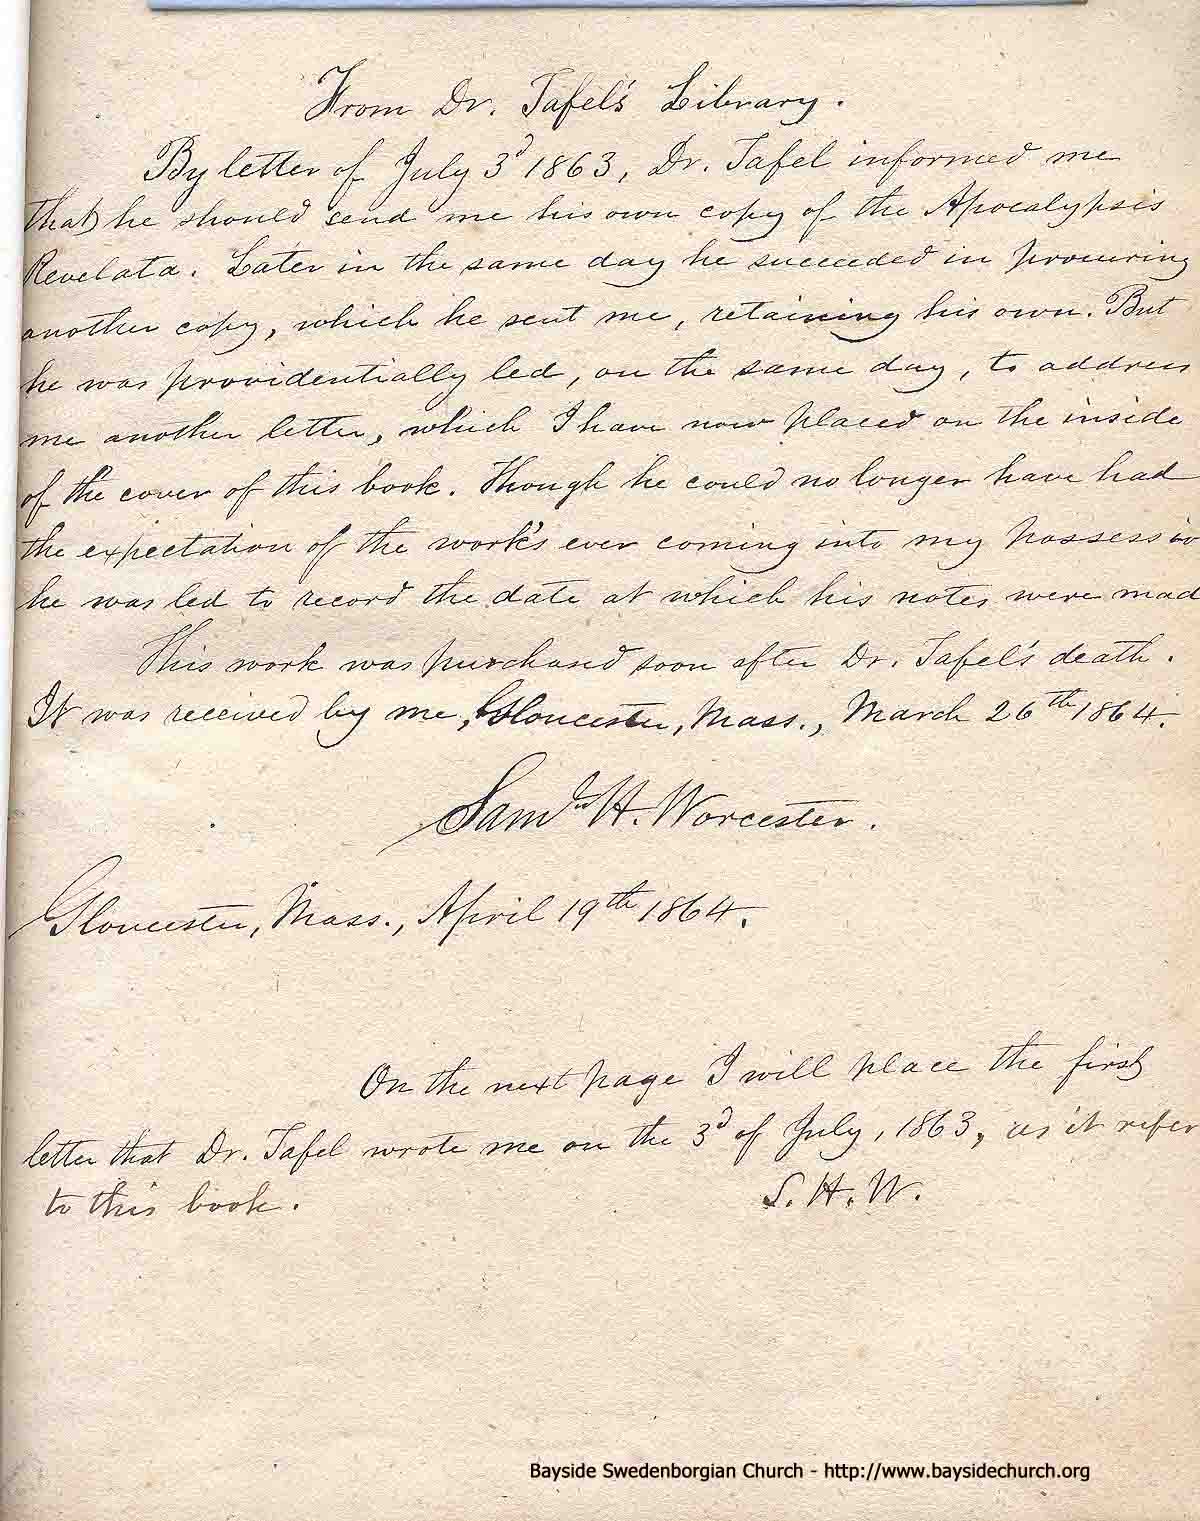 From Dr. Tafel's Library.
By letter of July 3d 1863, Dr. Tafel informed me
that he should send me his own copy of the Apocalypsis
Revelata. Later in the same day he succeeded in procuring
another copy, which he sent me, retaining his own. But
he was providentially led, on the same day, to address
me another letter, which I have now placed on the inside
of the cover of this book. Though he could no longer have had
the expectation of the work's ever coming into my possessio
he was led to record the date at which his notes were mad
This work was purchased soon after Dr. Tafel's death.
It was received by me, Gloucester, Mass., March 26th 1864.
Saml. H. Worcester.
Gloucester, Mass., April 19th 1864.
On the next page I will place the first
letter that Dr. Tafel wrote me on the 3d of July, 1863, as it refer
to this book.
S. H. W.
Bayside Swedenborgian Church - http://www.baysidechurch.org